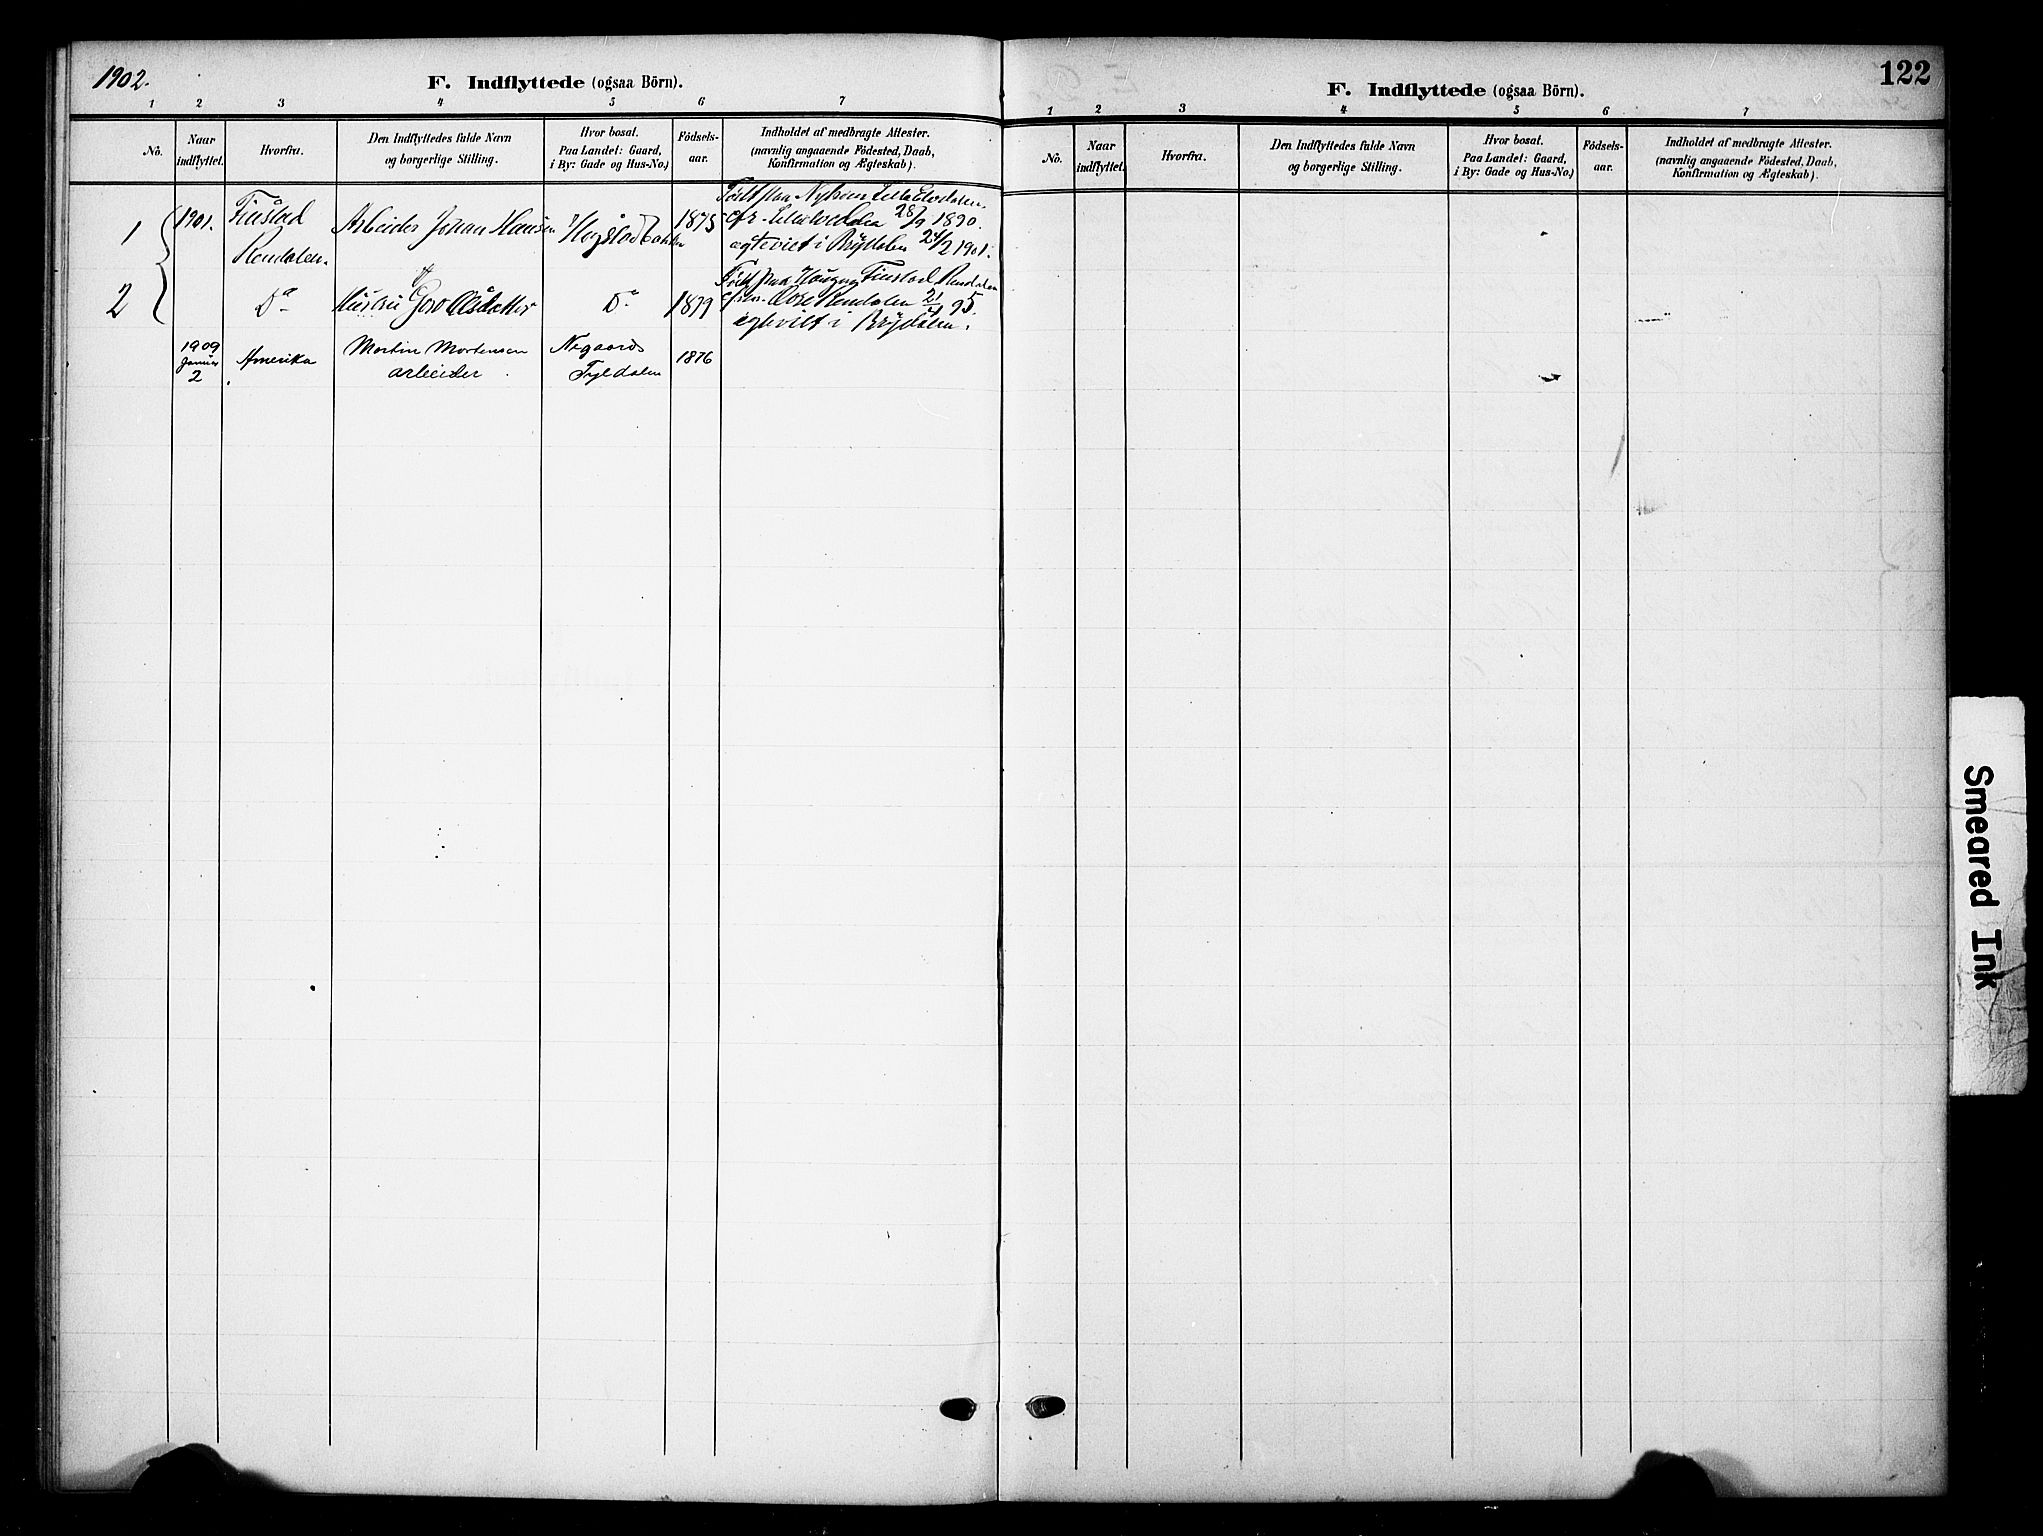 1902.
F. Indflyttede (ogsaa Börn).
1 2 3 4 5 6 7
No.
Naar indflyttet.
Hvorfra.
Den Indflyttedes fulde Navn
og borgerlige Stilling.
Hvor bosat.
Paa Landet: Gaard,
i By: Gade og Hus-No.)
Födsels-
aar.
Indholdet af medbragte Attester.
(navnlig angaaende Födested, Daab,
Konfirmation og Ægteskab).
1 1901. Finstad
Rendalen.
Arbeider Johan Hansen
1875
Födt paa Lille Elvedalen.
28/9 1890.
egteviet i Brydalen 24/2 1901.
2 Do Hustru Goro Olsdatter Do 1879
Födt paa Finstad Rendalen
Övre Rendalen 21/4 95.
egteviet i Brydalen.
1909
Januar
2
Amerika
Martin Mortensen
arbeider
Negaards
Tyldalen
1876
122
F. Indflyttede (ogsaa Börn).
1 2 3 4 5 6 7
No.
Naar
indflyttet.
Hvorfra.
Den Indflyttedes fulde Navn
og borgerlige Stilling.
Hvor bosat.
Paa Landet: Gaard,
i By: Gade og Hus-No.)
Födsels-
aar.
Indholdet af medbragte Attester.
(navnlig angaaende Födested, Daab,
Konfirmation og Ægteskab).
Smeared Ink